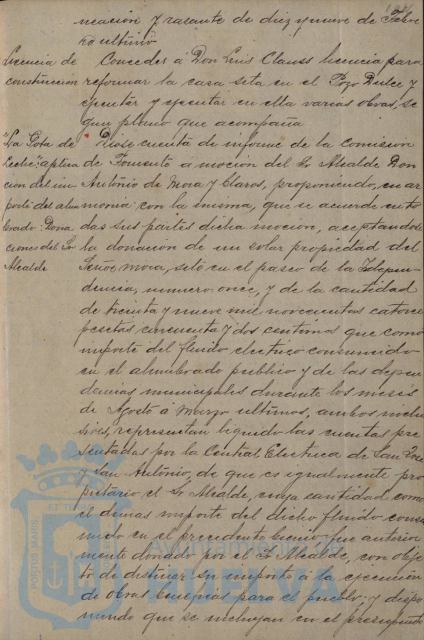 neación y rasante de diez y nueve de Febre
ro último
Licencia de construcción
Conceder á Don Luis Clauss licencia para
reformar la casa sita en el Pozo Dulce y
ejecutar y ejecutar en ella varias obras, se
gun plano que acompaña
"La Gota de
Leche", aplica
cion del im
porte del alum
brado. Dona
ciones del Sr
Alcalde
Dióse cuenta de informe de la comision
de Fomento á mocion del Sr Alcalde Don
Antonio de Mora y Claros, proponiendo, en ar
monia con la misma, que se acuerde en to
das sus partes dicha mocion, aceptandose
la donación de un solar propiedad del
Señor Mora, sito en el paseo de la Indepen
dencia, numero once, y de la cantidad
de treinta y nueve mil novecientas catorce
pesetas cincuenta y dos centimos que como
importe del fluido electrico consumido
en el alumbrado publico y de las depen
dencias municipales durante los meses
de Agosto á Marzo ultimos, ambos inclu
sives, representan liquido las cuentas pre
sentadas por la Central Electrica de San José
y San Antonio, de que es igualmente pro
pietario el Sr Alcalde, cuya cantidad como
el demas importe del dicho fluido consu
mido en el precedente bienio, fue anterior
mente donado por el Sr Alcalde, con obje
to de destinar su importe á la ejecución
de obras benéficas para el pueblo; y dispo
niendo que se incluyan en el presupuesto
PORTUS MARIS
ET TE